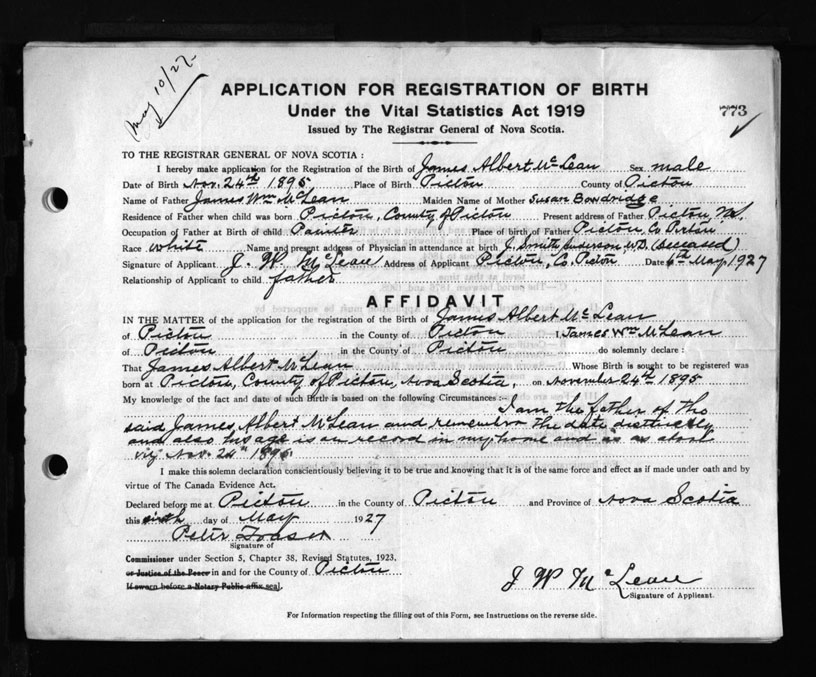 May 10/27
APPLICATION FOR REGISTRATION OF BIRTH
Under the Vital Statistics Act 1919
773
Issued by The Registrar General of Nova Scotia.
TO THE REGISTRAR GENERAL OF NOVA SCOTIA :
I hereby make application for the Registration of the Birth of James Albert McLean Sex male
Date of Birth Nov. 24th 1895 Place of Birth Pictou County of Pictou
Name of Father James Wm McLean Maiden Name of Mother Susan Bowdridge
Residence of Father when child was born Pictou, County of Pictou Present address of Father Pictou, N.S.
Occupation of Father at Birth of child Painter Place of birth of Father Pictou, Co Pictou
Race White Name and present address of Physician in attendance at birth J. Smith Anderson, M.D. (deceased)
Signature of Applicant J. W. McLean Address of Applicant Pictou, Co. Pictou Date 6th May, 1927
Relationship of Applicant to child father
AFFIDAVIT
IN THE MATTER of the application for the registration of the Birth of James Albert McLean
of Pictou in the County of Pictou I, James Wm McLean
of Pictou in the County of Pictou do solemnly declare :
That James Albert McLean Whose Birth is sought to be registered was
born at Pictou, County of Pictou, Nova Scotia, on November 24th 1895
My knowledge of the fact and date of such Birth is based on the following Circumstances :- I am the father of the
said James Albert McLean and remember the date distinctly
and also his age is on record in my home and is as above
viz Nov. 24th 1895
I make this solemn declaration conscientiously believing it to be true and knowing that it is of the same force and effect as if made under oath and by
virtue of The Canada Evidence Act.
Declared before me at Pictou in the County of Pictou and Province of Nova Scotia
this sixth day of May 1927
Peter
Signature of
Commissioner under Section 5, Chapter 38, Revised Statutes, 1923,
or Justice of the Peace in and for the County of Pictou
If sworn before a Notary Public affix seal.
J W McLean
Signature of Applicant.
For Information respecting the filling out of this Form, see Instructions on the reverse side.